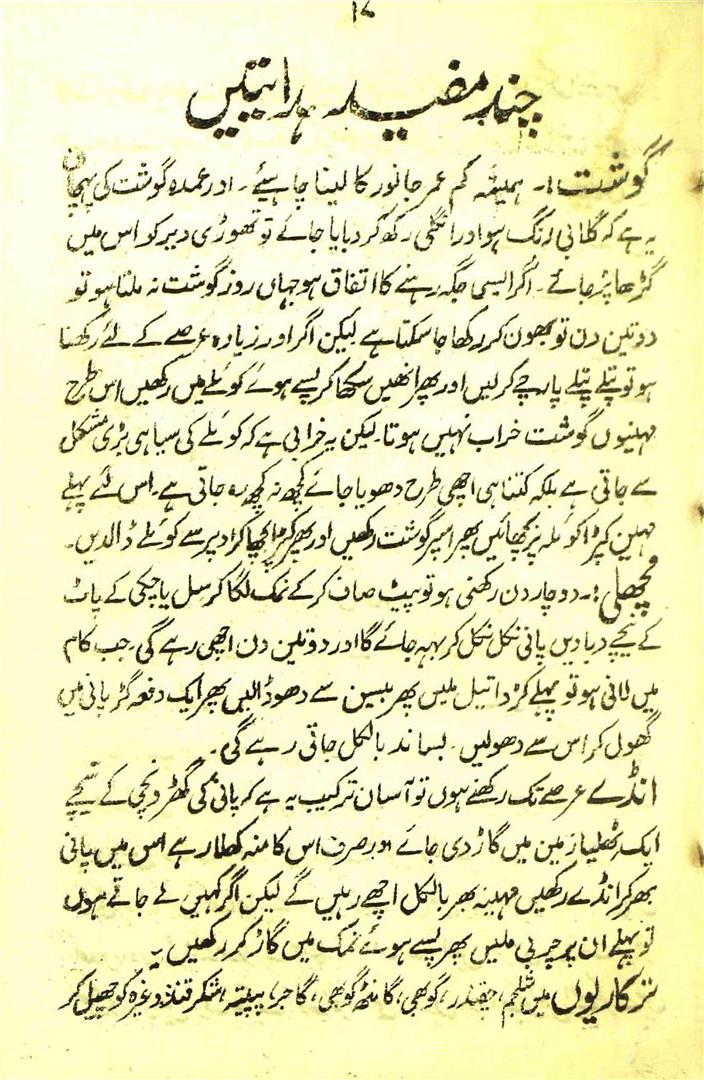 ۱۷
چند مفید ہدایتیں
گوشت:۔ ہمیشہ کم عمر جانور کا لینا چاہیئے۔ اور عمدہ گوشت کی پہچان
یہ ہے کہ گلابی رنگ ہو اور انگلی رکھ کر دبایا جائے تو تھوڑی دیر کو اس میں
گڑھا پڑ جائے۔ اگر ایسی جگہ رہنے کا اتفاق ہو جہاں روز گوشت نہ ملتا ہو تو
دو تین دن تو بھون کر رکھا جا سکتا ہے لیکن اگر اور زیادہ عرصے کے لئے رکھنا
ہو تو پتلے پتلے پارچے کر لیں اور پھر انھیں سکھا کر پسے ہوئے کوئلے میں رکھیں اس طرح
مہینوں گوشت خراب نہیں ہوتا۔ لیکن یہ خرابی ہے کہ کوئلے کی سیاہی بڑی مشکل
سے جاتی ہے بلکہ کتنا ہی اچھی طرح دھویا جائے کچھ نہ کچھ رہ جاتی ہے۔ اس لئے پہلے
مہین کپڑا کوئلہ پر بچھائیں پھر اسپر گوشت رکھیں اور پھر کپڑا بچھا کر اوپر سے کوئلے ڈالدیں۔
مچھلی:۔ دو چار دن رکھنی ہو تو پیٹ صاف کر کے نمک لگا کر سل یا چکی کے پاٹ
کے نیچے دبا دیں پانی نکل نکل کر بہہ جائے گا اور دو تین دن اچھی رہے گی۔ جب کام
میں لانی ہو تو پہلے کڑوا تیل ملیں پھر بیسن سے دھو ڈالیں پھر ایک دفعہ گڑ پانی میں
گھول کر اس سے دھولیں۔ بساند بالکل جاتی رہے گی۔
انڈے عرصے تک رکھنے ہوں تو آسان ترکیب یہ ہے کہ پانی کی گھڑونچی کے نیچے
ایک ٹھلیا زمین میں گاڑ دی جائے اور صرف اس کا منہ کھلا رہے اس میں پانی
بھر کر انڈے رکھیں مہینہ بھر بالکل اچھے رہیں گے لیکن اگر کہیں لے جانے ہوں
تو پہلے ان پر چربی ملیں پھر پسے ہوئے نمک میں گاڑ کر رکھیں۔
ترکاریوں میں شلجم، چقندر، گوبھی، گانٹھ گوبھی، گاجر، پپیتہ، شکر قند وغیرہ کو چھیل کر